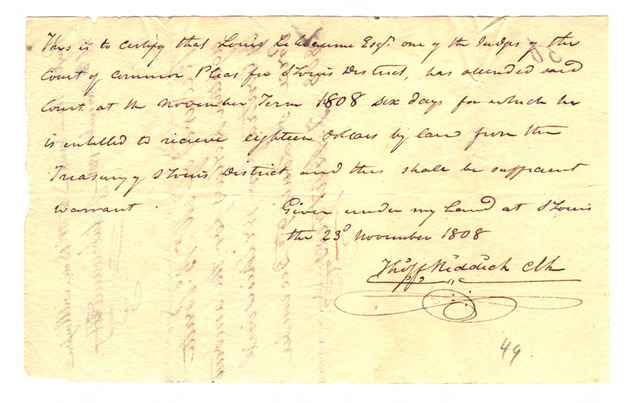 This is to certify that Louis Lebeaume Esqr. one of the Judges of the
Court of common Pleas for St Louis District, has attended said
Court at the November Term 1808 six days for which he
is entitled to recieve eighteen dollars by law from the
Treasury of St Louis District, and this shall be sufficient
warrant.
Given under my hand at St Louis
the 23d November 1808
Thos F Riddick Clk
49